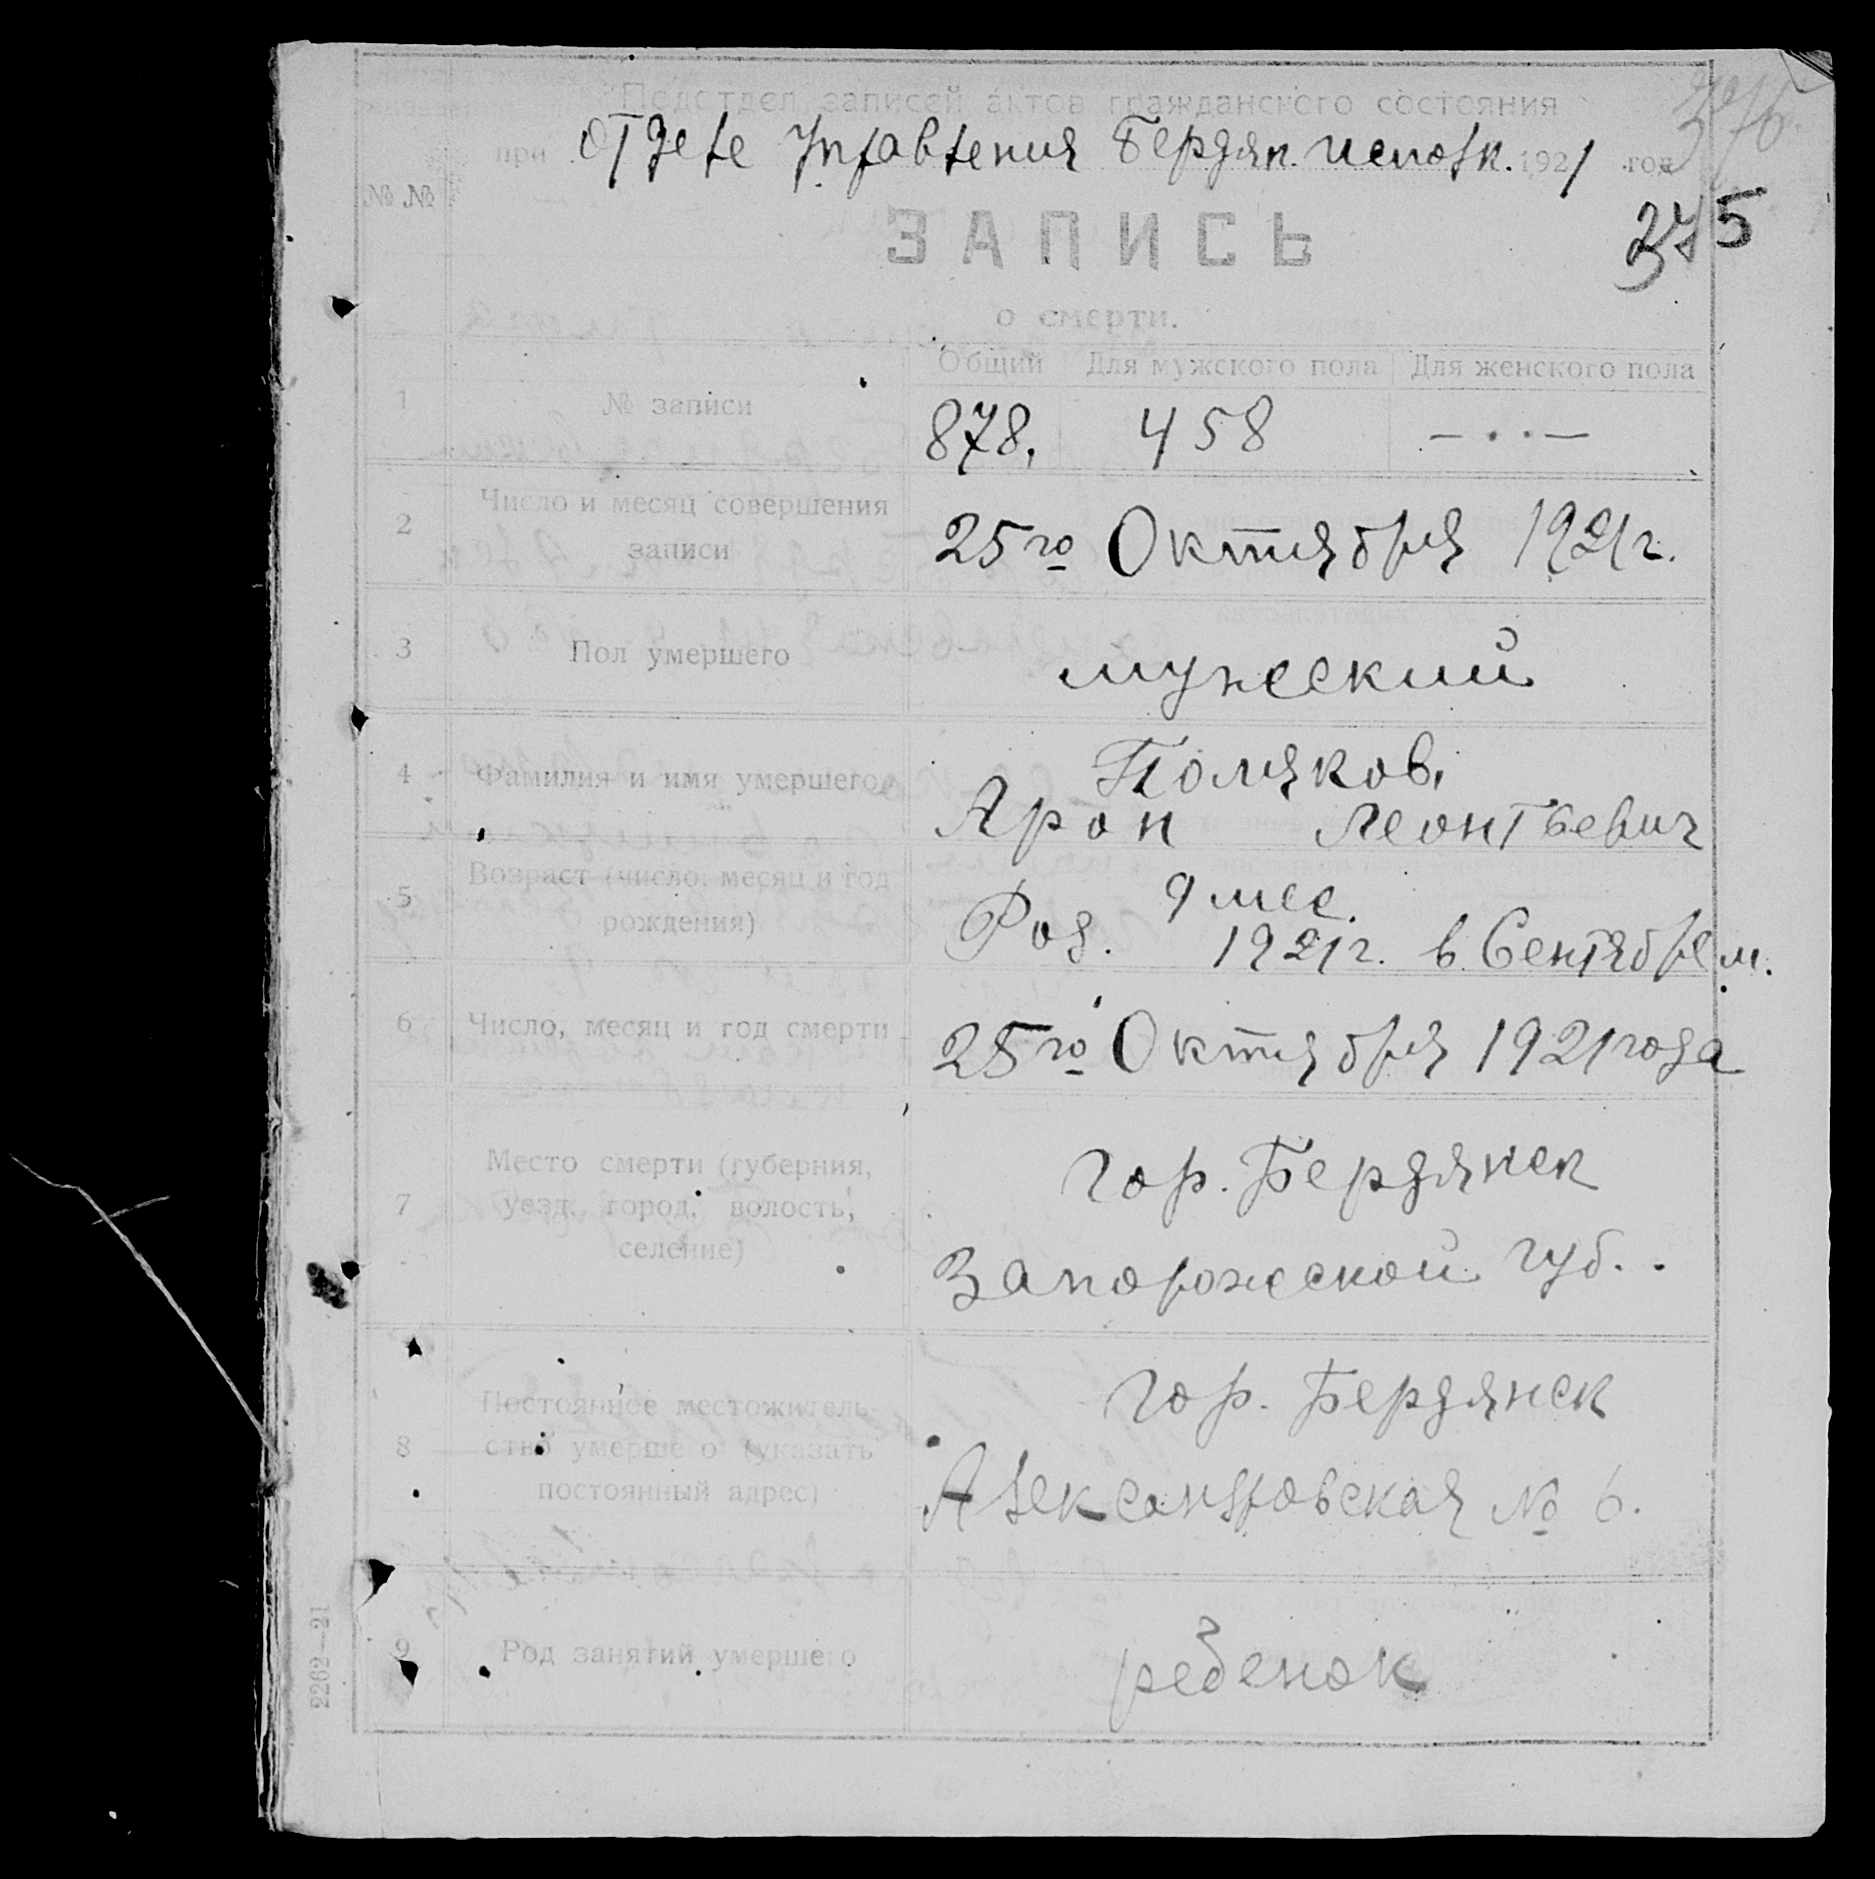 Подотдел записей актов гражданского состояния
при Отделе Управления Бердян. исполк. 1921 год
375
№ №
ЗАПИСЬ
о смерти.
Общий Для мужского пола Для женского пола
1 № записи 878, 458 — · · —
2 Число и месяц совершения
записи 25го Октября 1921 г.
3 Пол умершего мужеский
4 Фамилия и имя умершего Поляков,
Арон Леонтьевич
5 Возраст (число, месяц и год
рождения) 9 мес.
Род. 1921 г. в Сентябре м.
6 Число, месяц и год смерти 25го Октября 1921 года
7 Место смерти (губерния,
уезд, город, волость,
селение) гор. Бердянск
Запорожской губ.
8 Постоянное местожитель-
ство умершего (указать
постоянный адрес) гор. Бердянск
Александровская № 6.
9 Род занятий умершего ребенок
2262—21